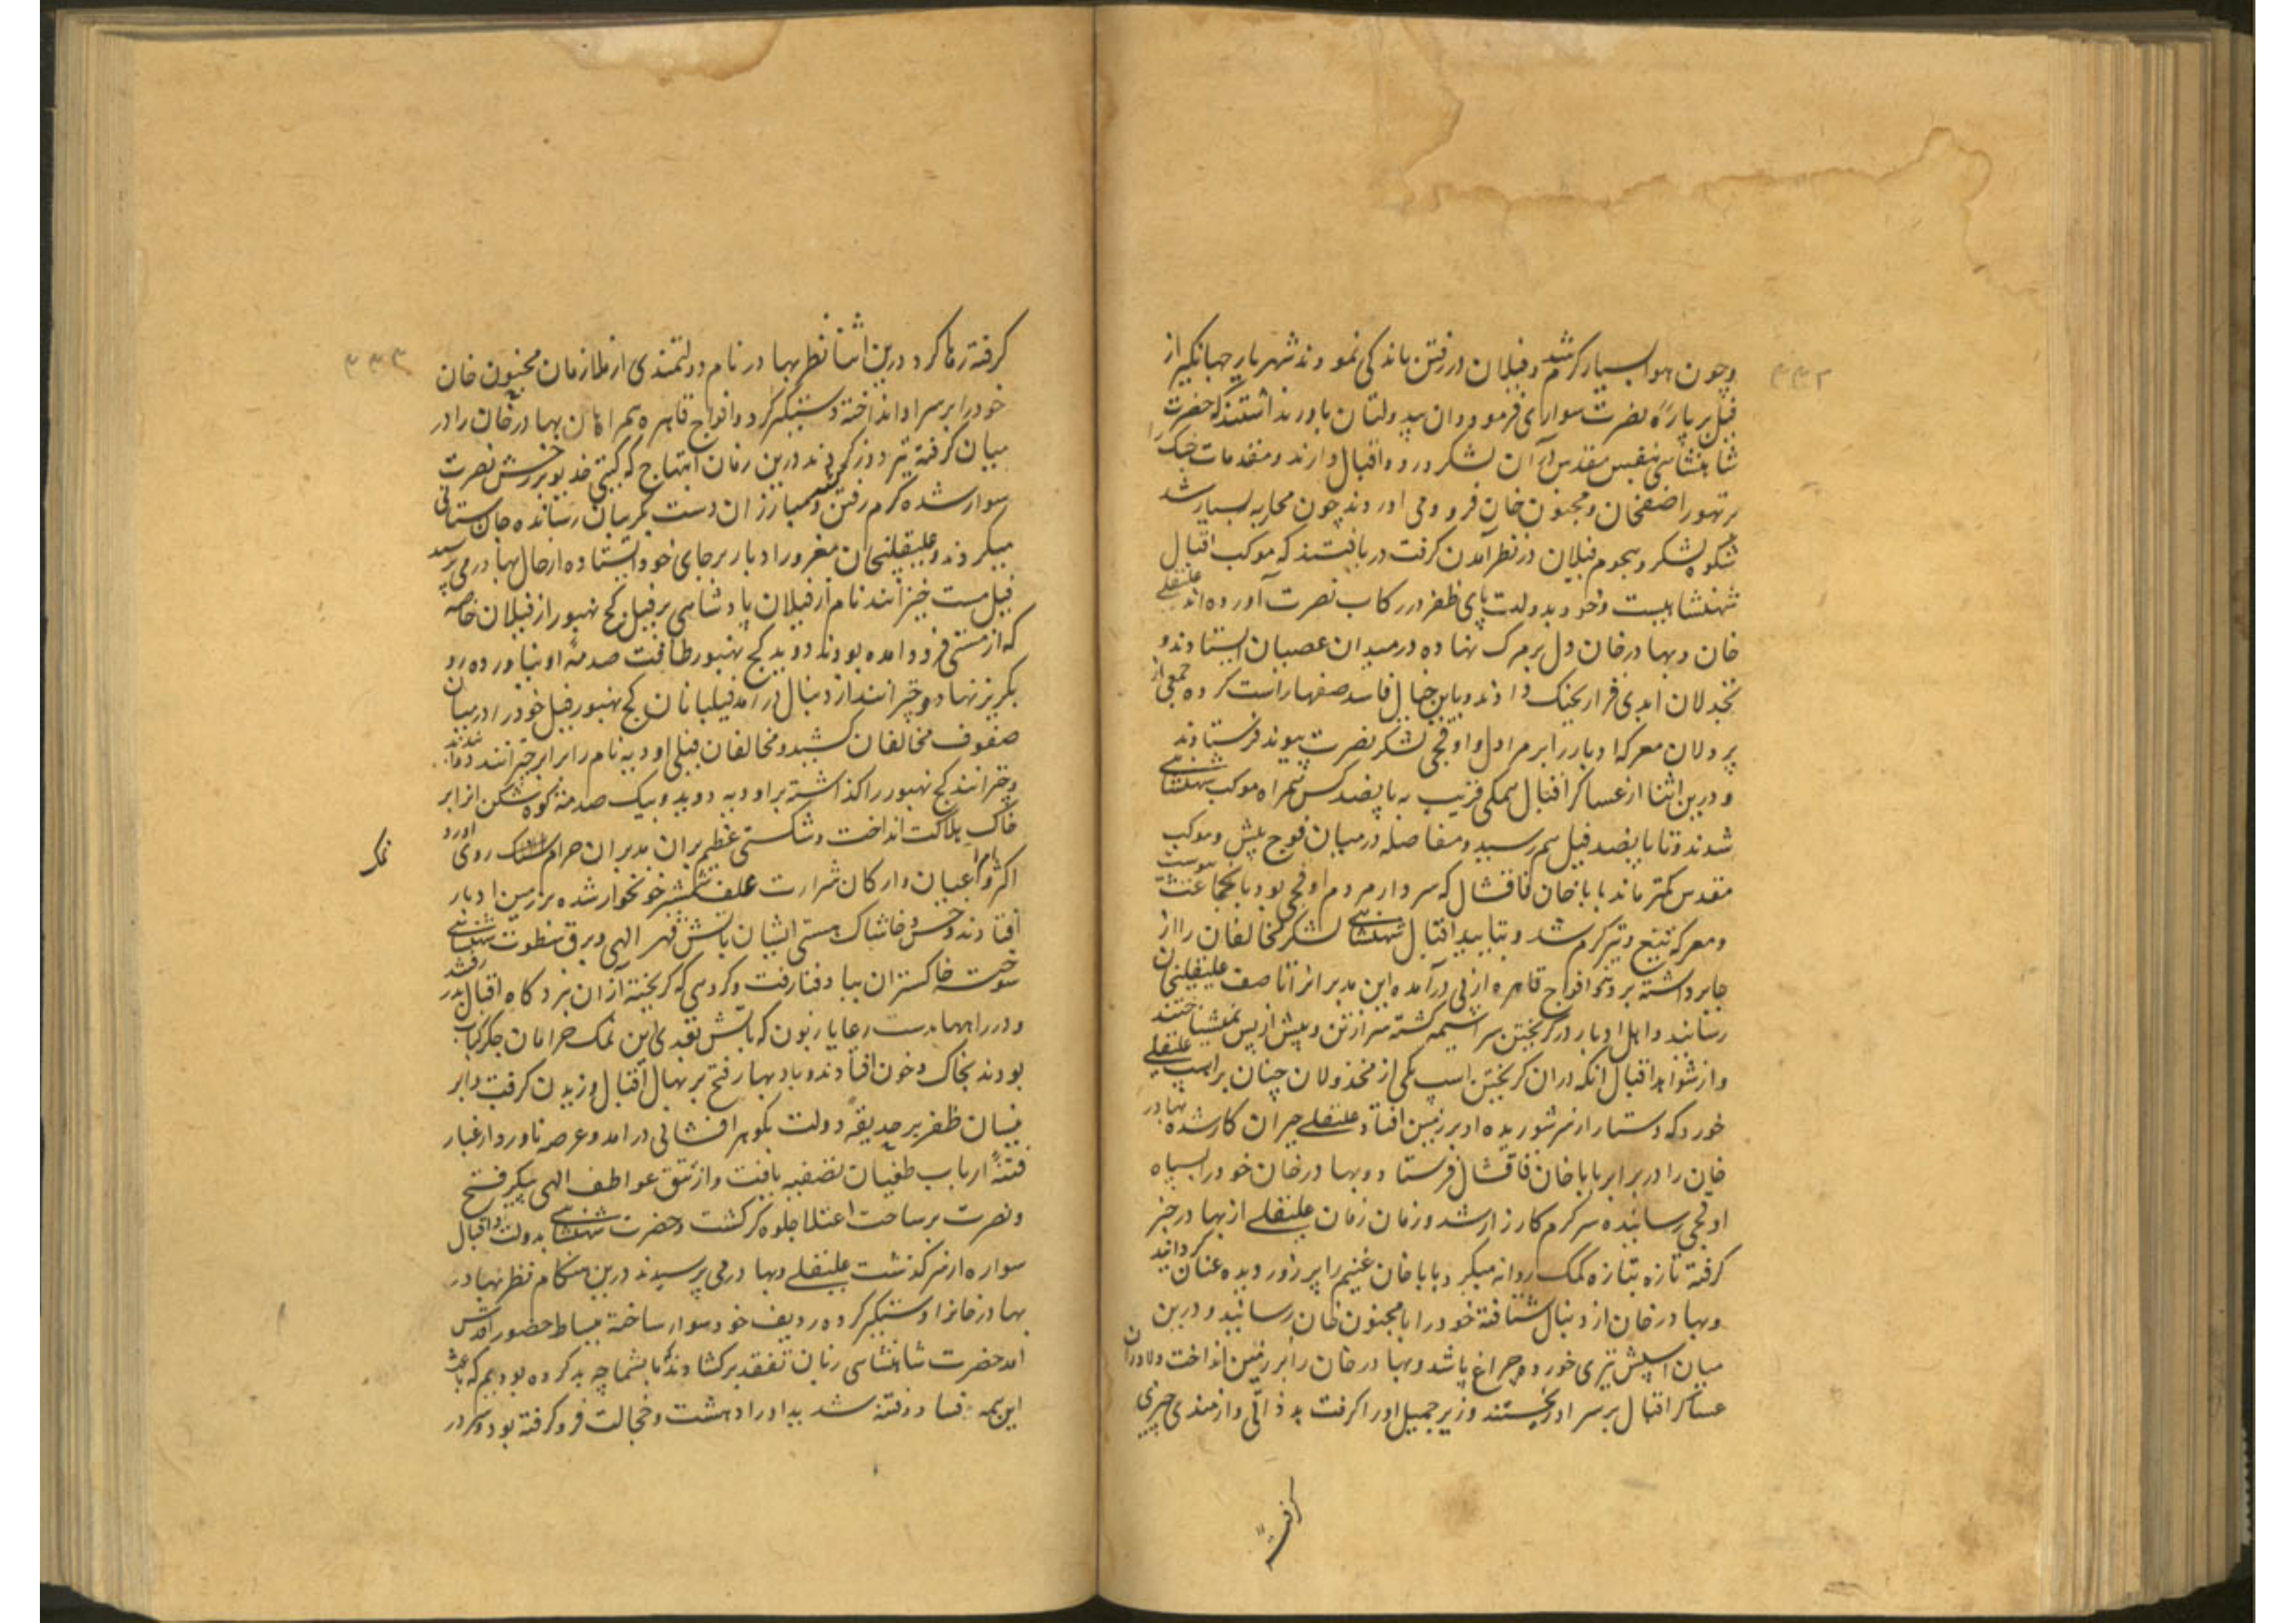 ۳۳۲
وچون هوا بسیار گرم شد و فیلان در رفتن ماندکی نمودند شهریار جهانگیر از
فیل بر باره نصرت سواری فرمود و ان بیدولتان باور نداشتند که حضرت
شاهنشاهی بنفس مقدس در آن لشکر ورود اقبال دارند و مقدمات جنک را
بر تهور اصفخان و مجنون خان فرو می اوردند چون محاربه بسیار شد
شکوه لشکر و هجوم فیلان در نظر آمدن کرفت دریافتند که موکب اقبال
شهنشاهیست و خود بدولت پای ظفر در رکاب نصرت آورده اند علیقلی
خان و بهادر خان دل بر مرک نهاده در میدان عصیان ایستادند و
بخذلان ابدی قرار بجنک دادند و باین خیال فاسد صفها راست کرده جمعی از
پردلان معرکه ادبار را برابر مردم اوقچی لشکر نصرت پیوند فرستادند
و درین اثنا از عساکر اقبال همکی قریب به پانصد کس همراه موکب شهنشاهی
شدند و تا پانصد فیل هم رسید و مفاصله درمیان فوج پیش و موکب
مقدس کمتر ماند بابا خان قاقشال که سردار مردم اوقچی بود با جماعت پیوست
و معرکه تیغ و تیر کرم شد و بتایید اقبال شهنشاهی لشکر مخالفان را از
جا برداشته بردند و افواج قاهره از پی درآمده این مدبرانرا تا صف علیقلیخان
رسانند و اهل ادبار در کریختن سراسیمه کشته سر از تن و پیش از پس نمیشناختند
و از شواهد اقبال انکه دران کریختن اسپ یکی از مخذولان چنان بر اسپ علیقلی
خورد که دستار از سر شوریده او بر زمین افتاد علیقلی حیران کار شده بهادر
خان را در برابر بابا خان قاقشال فرستاد و بهادر خان خود را بسپاه
اوقچی رسانیده سرکرم کارزار شد و زمان زمان علیقلی از بهادر خبر
کرفته تازه بتازه کمک روانه میکرد بابا خان غنیم را پر زور دیده عنان کردانید
و بهادر خان از دنبال شتافته خود را با مجنون خان رسانید و درین
میان اسپش تیری خورد و چراغ پا شد و بهادر خان را بر زمین انداخت و دلاوران
عساکر اقبال بر سر او ریختند و وزیر جمیل او را کرفت بد ذاتی و ازمندی چیزی
کرفته
۳۳۳
کرفته رها کرد درین اثنا نظر بهادر نام دولتمندی از ملازمان مجنون خان
خود را بر سر او انداخته دستکیر کرد و افواج قاهره همراهان بهادر خان را در
میان کرفته تیر دوز کردند درین زمان ابتهاج که کیتی خدیو بر رخش نصرت
سوار شده کرم رفتن و مبارزان دست بکریبان رسانده جان ستانی
میکردند و علیقلیخان مغرور ادبار برجای خود ایستاده از حال بهادر می پرسید
فیل مست خیرانند نام از فیلان پادشاهی بر فیل کج بهنور از فیلان خاصه
که از مستی فرود امده بودند دوید کج بهنور طاقت صدمه او نیاورده رو
بکریز نهاد و خیرانند از دنبال درامد فیلبانان کج بهنور فیل خود را درمیان
صفوف مخالفان کشید و مخالفان فیلی اودیه نام را برابر خیرانند دوانیدند
و خیرانند کج بهنور را کذاشته بر اودیه دوید و بیک صدمه کوه شکن انرا بر
خاک هلاکت انداخت و شکستی عظیم بران مدبران حرام نمک روی اورد
نمک
اکثری از اعیان و ارکان شرارت علف شمشیر خونخوار شده بر زمین ادبار
افتادند و خس و خاشاک هستی ایشان باتش قهر الهی و برق سطوت شهنشاهی
سوخت خاکستر ان بباد فنا رفت و کروهی که کریخته از ان نبرد کاه اقبال بدر رفتند
و در راهها بدست رعایا زبون که باتش تعدی این نمک حرامان جکر کباب
بودند بخاک و خون افتادند و باد بهار فتح بر نهال اقبال وزیدن کرفت و ابر
نیسان ظفر بر حدیقه دولت بکوهر افشانی درامد و عرصه ناورد از غبار
فتنه ارباب طغیان تصفیه یافت و از تتق عواطف الهی پیکر فتح
و نصرت بر ساحت اعتلا جلوه کر کشت و حضرت شهنشاهی بدولت و اقبال
سواره از سرکذشت علیقلی و بهادر می پرسیدند درین هنکام نظر بهادر
بهادر خانرا دستکیر کرده ردیف خود سوار ساخته ببساط حضور اقدس
امد حضرت شاهنشاهی زبان تفقد برکشادند که ما بشما چه بد کرده بودیم که باعث
این همه فساد و فتنه شدید او را دهشت و خجالت فرو کرفته بود و سر در